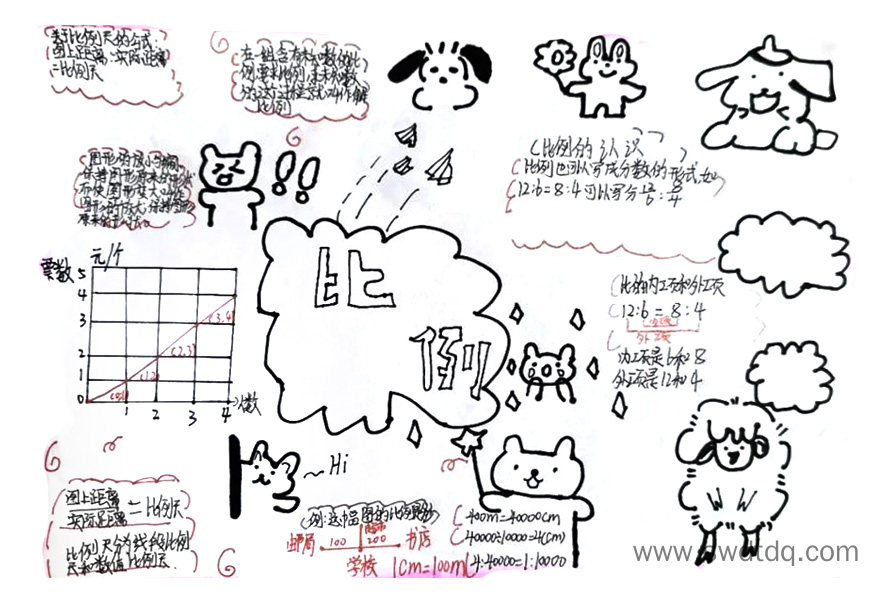 关于比例尺的公式:
图上距离:实际距离
=比例尺
在一组含有未知数的比
例里求比例,未知数
的这个过程就叫作解
比例
比例的认识
比例也可以写成分数的形式,如
12:6=8:4可以写分12/6:8/4
图形的
保持图形原来的
而使图形变大
图形的放大
比例
元/个
票数
5
4
3
2
1
0
1
2
3
4
个数
(2,3)
(3,4)
比的内项和外项
12:6=8:4
内项
外项
内项是6和8
外项是12和4
~Hi
图上距离
实际距离
=比例尺
比例尺分为线段比例
尺和数值比例尺
例:这幅图的比例
邮局
100
200
书店
学校
1cm=100m
400m=40000cm
40000÷10000=4(cm)
4:40000=1:10000